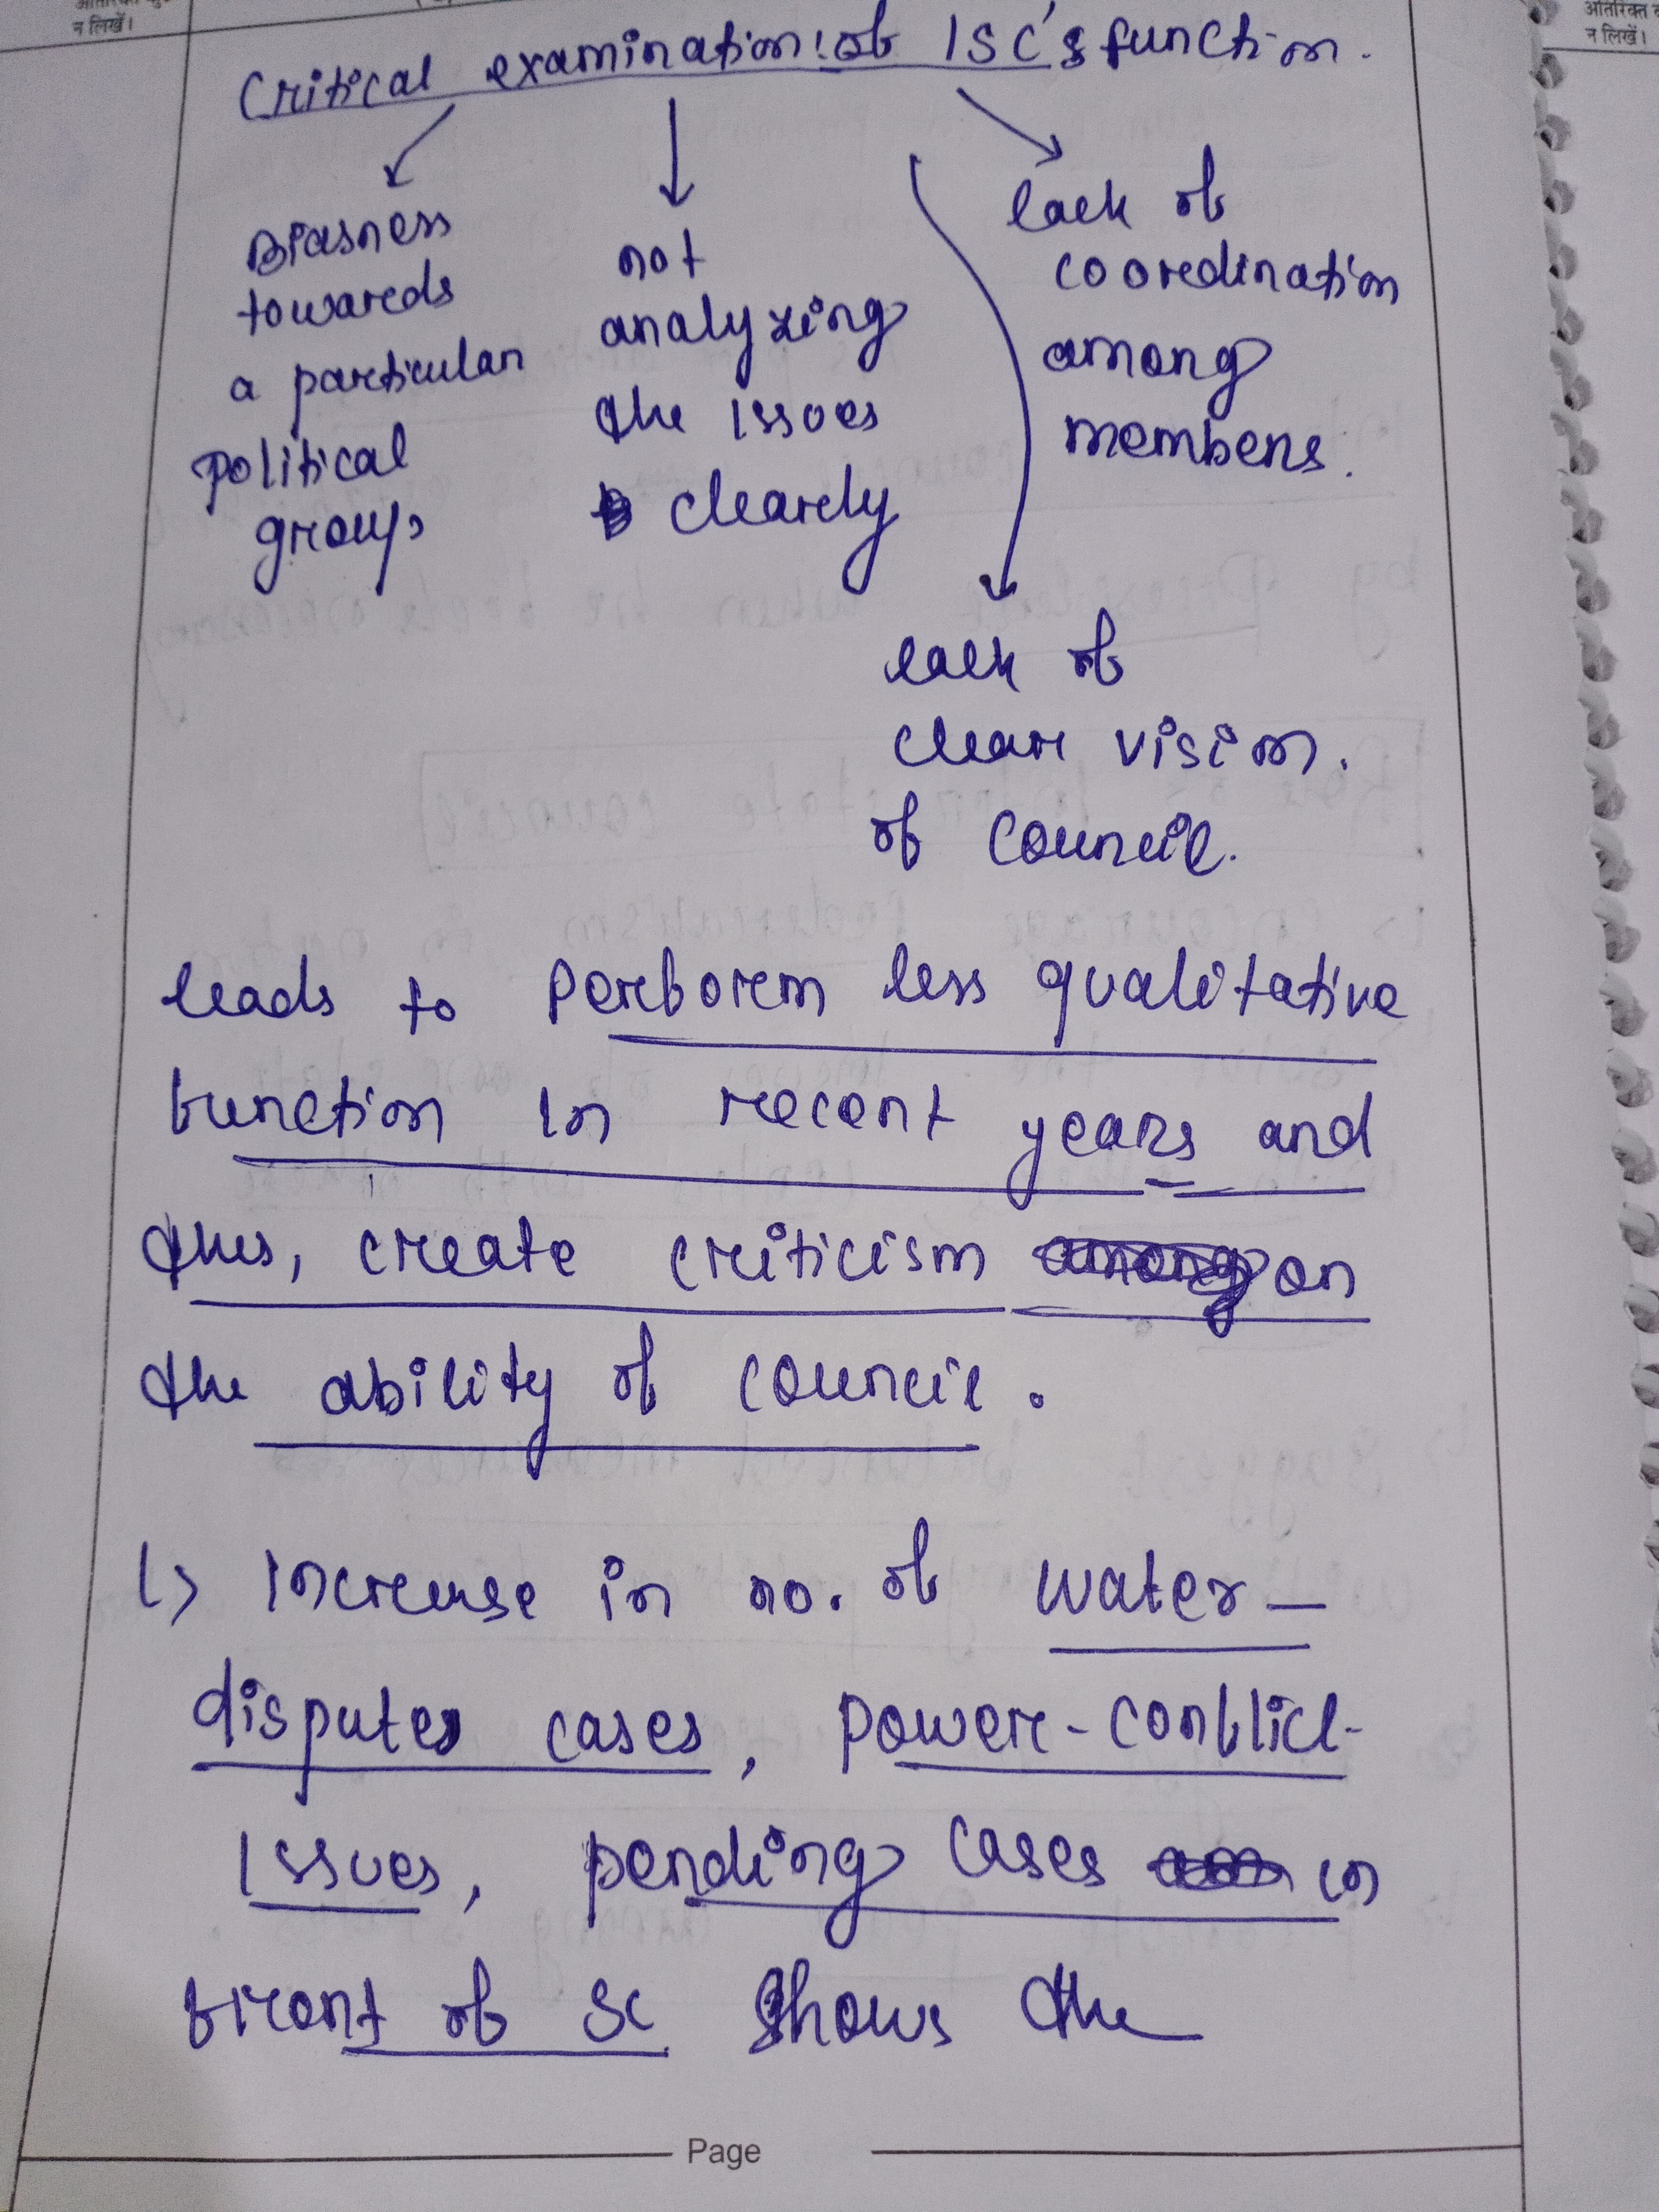 न लिखें।
अतिरिक्त
न लिखें।
Critical examination of ISC's function.
Biasness
towards
a particular
political
group
not
analyzing
the issues
clearly
lack of
coordination
among
members.
lack of
clear vision.
of council.
leads to perform less qualitative
function in recent years and
thus, create criticism on
the ability of council.
↳ Increase in no. of water-
disputes cases, power-conflict-
issues, pending cases in
front of SC shows the
Page